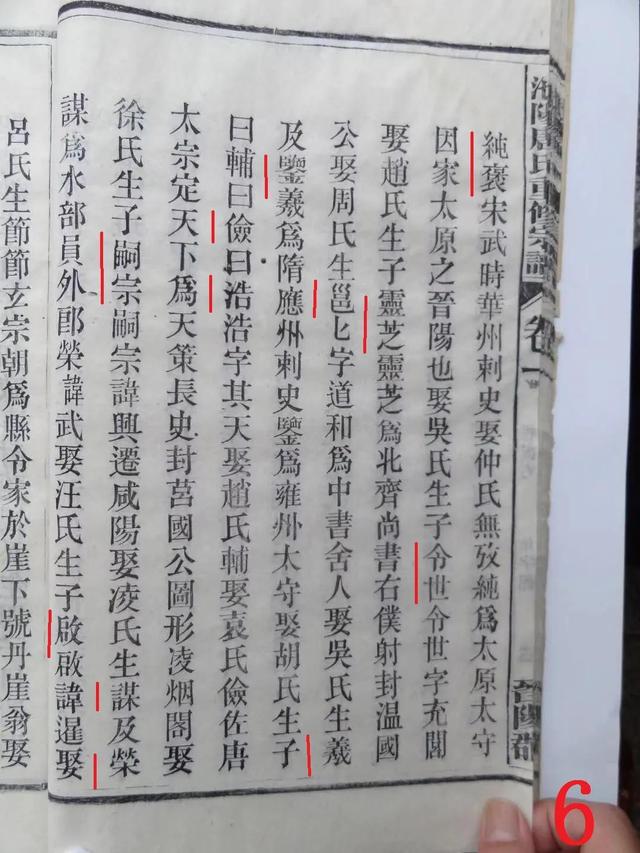 純褒宋武時華州刺史娶仲氏無攷純為太原太守
因家太原之晉陽也娶吳氏生子令世令世字充閭
娶趙氏生子靈芝靈芝為北齊尚書右僕射封溫國
公娶周氏生邕邕字道和為中書舍人娶吳氏生羲
及鑒羲為隋應州刺史鑒為雍州太守娶胡氏生子
曰輔曰儉曰浩浩字其天娶趙氏輔娶袁氏儉佐唐
太宗定天下為天策長史封莒國公圖形凌烟閣娶
徐氏生子嗣宗嗣宗諱興遷咸陽娶凌氏生謀及榮
謀為水部員外郎榮諱武娶汪氏生子啟啟諱暹娶
呂氏生節節玄宗朝為縣令家於崖下號丹崖翁娶
唐氏重修宗譜
卷一
晉陽
6